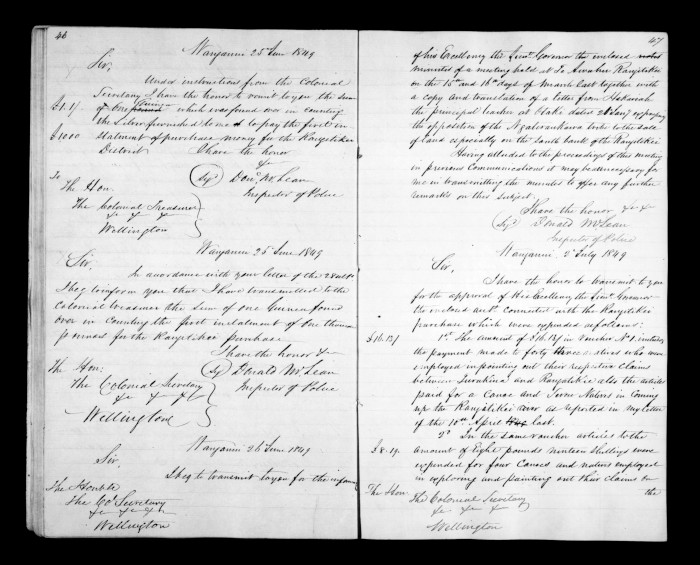 46
Wanganui 25 June 1849
Sir,
Under instructions from the Colonial
Secretary I have the honor to remit to you the sum
£1.1/ of One Guinea which was found over in counting
the Silver furnished to me to pay the first in
£1000 stalment of purchase money for the Rangitikei
District. I have the honor
&c
(Sgd) Don. McLean
Inspector of Police
To
The Hon.
The Colonial Treasurer
&c &c &c
Wellington
Wanganui 25 June 1849
Sir,
In accordance with your letter of the 28 ulto
I beg to inform you that I have transmitted to the
Colonial Treasurer the sum of one Guinea found
over in counting the first instalment of one thous
pounds for the Rangitikei purchase.
I have the honor &c
(Sgd) Donald McLean
Inspector of Police
The Hon:
The Colonial Secretary
&c &c &c
Wellington
Wanganui 26 June 1849
Sir,
I beg to transmit to you for the information
The Honble
The Col Secretary
&c &c &c
Wellington
47
of his Excellency the Lieut. Governor the enclosed
minutes of a meeting held at Te Awahou Rangitikei
on the 15th and 16th days of March last together with
a copy and translation of a letter from Hakaraia
the principal teacher at Otaki dated 28 Jany
the opposition of the Ngatiraukawa tribe to the sale
of land especially on the South bank of the Rangitikei
Having alluded to the proceedings of this meeting
in previous Communications it may be unnecessary for
me in transmitting the minutes to offer any further
remarks on this subject.
I have the honor &c &c
(Sgd) Donald McLean
Inspector of Police
Wanganui 2 July 1849
Sir,
I have the honor to transmit to you
for the approval of His Excellency the Lieut. Governor
the enclosed acct connected with the Rangitikei
purchase which were expended as follows:
£16.13/ 1st The amount of £16.13/ in Voucher No 1 includes
the payment made to forty three natives who were
employed in pointing out their respective claims
between Turakina and Rangitikei also the articles
paid for a Canoe and Seven Natives in coming
up the Rangitikei river as reported in my letter
of the 10th April last.
2d In the same voucher articles to the
£8.19. amount of Eight pounds nineteen Shillings were
expended for four Canoes and natives employed
in exploring and pointing out their claims on
the
The Hon
The Colonial Secretary
&c &c &c
Wellington